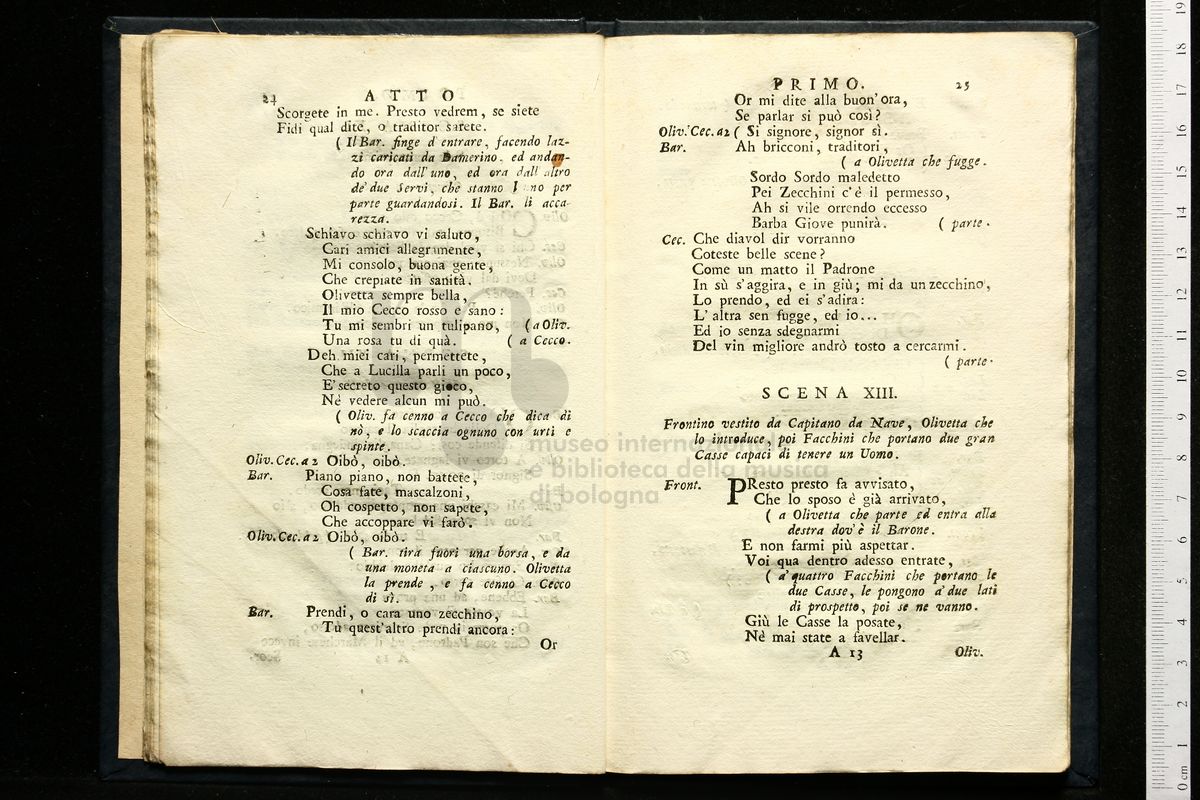 24 ATTO
Scorgete in me. Presto vedrem, se siete
Fidi qual dite, o traditor sarete.
( Il Bar. finge d'entrare, facendo laz-
zi caricati da Damerino, ed andan-
do ora dall'uno, ed ora dall'altro
de'due Servi, che stanno per
parte guardandosi. Il Bar. li acca-
rezza.
Schiavo schiavo vi saluto,
Cari amici allegramente,
Mi consolo, buona gente,
Che crepiate in sanità.
Olivetta sempre bella,
Il mio Cecco rosso e sano:
Tu mi sembri un tulipano, (a Oliv.
Una rosa tu di quà. ( a Cecco.
Deh miei cari, permettete,
Che a Lucilla parli un poco,
E' secreto questo gioco,
Nè vedere alcun mi può.
( Oliv. fa cenno a Cecco che dica di
nò, e lo scaccia ognuno con urti e
spinte.
Oliv. Cec. a 2 Oibò, oibò.
Bar. Piano piano, non battete,
Cosa fate, mascalzoni,
Oh cospetto, non sapete,
Che accoppare vi farò.
Oliv. Cec. a 2 Oibò, oibò.
( Bar. tira fuori una borsa, e da
una moneta a ciascuno. Olivetta
la prende, e fa cenno a Cecco
di sì.
Bar. Prendi, o cara uno zecchino,
Tu quest'altro prendi ancora:
Or
PRIMO. 25
Or mi dite alla buon'ora,
Se parlar si può così?
Oliv. Cec. a2 ( Si signore, signor sì.
Bar. Ah bricconi, traditori,
( a Olivetta che fugge.
Sordo Sordo maledetto
Pei Zecchini c'è il permesso,
Ah si vile orrendo eccesso
Barba Giove punirà. ( parte.
Cec. Che diavol dir vorranno
Coteste belle scene?
Come un matto il Padrone
In sù s'aggira, e in giù; mi da un zecchino,
Lo prendo, ed ei s'adira:
L'altra sen fugge, ed io...
Ed io senza sdegnarmi
Del vin migliore andrò tosto a cercarmi.
( parte.
SCENA XIII.
Frontino vestito da Capitano da Nave, Olivetta che
lo introduce, poi Facchini che portano due gran
Casse capaci di tenere un Uomo.
Front. PResto presto fa avvisato,
Che lo sposo è già arrivato,
( a Olivetta che parte ed entra alla
destra dov'è il Barone.
E non farmi più aspettar.
Voi qua dentro adesso entrate,
( a' quattro Facchini che portano le
due Casse, le pongono a' due lati
di prospetto, poi se ne vanno.
Giù le Casse la posate,
Nè mai state a favellar.
A 13 Oliv.
museo internazionale
e biblioteca della musica
di bologna
0 cm 1 2 3 4 5 6 7 8 9 10 11 12 13 14 15 16 17 18 19